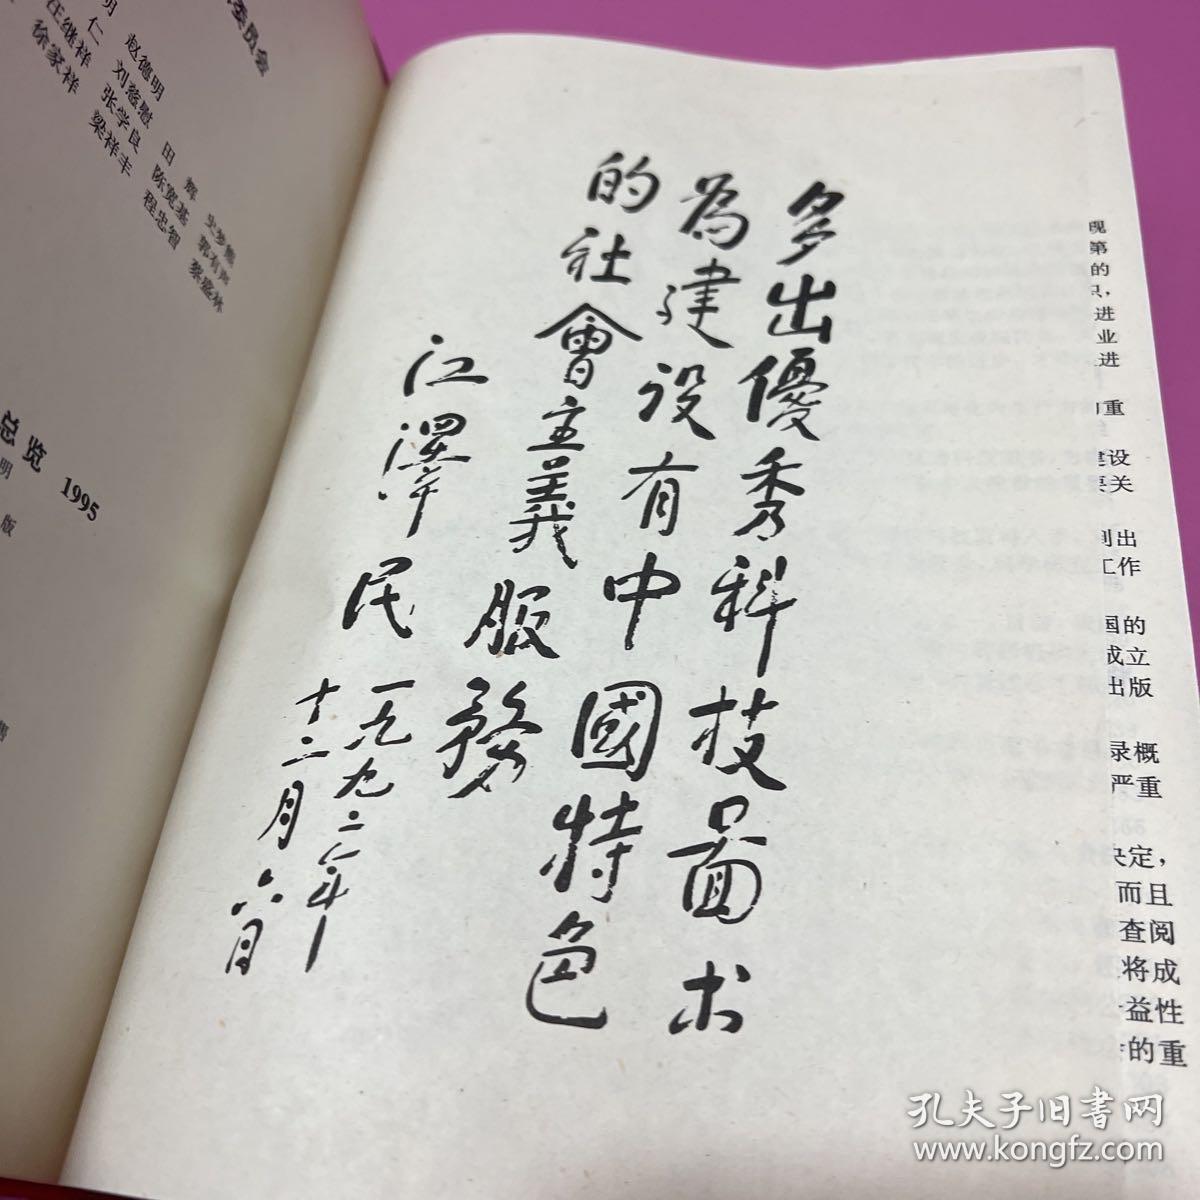 委员会
明 赵德明
仁 刘慈慰 田 辉 史梦熊
汪继祥 张学良 陈宽基 郭有声
徐家祥 梁祥丰 程忠智 蔡盛林
总览 1995
明
版
售
多出優秀科技啚书
為建设有中國特色
的社會主義服務
江澤民 一九九二年
十二月六日
现
第
的
进
业
进
重
建设
关
出
工作
国的
成立
出版
录概
严重
决定,
而且
查阅
将成
益性
的重
孔夫子旧书网
www.kongfz.com